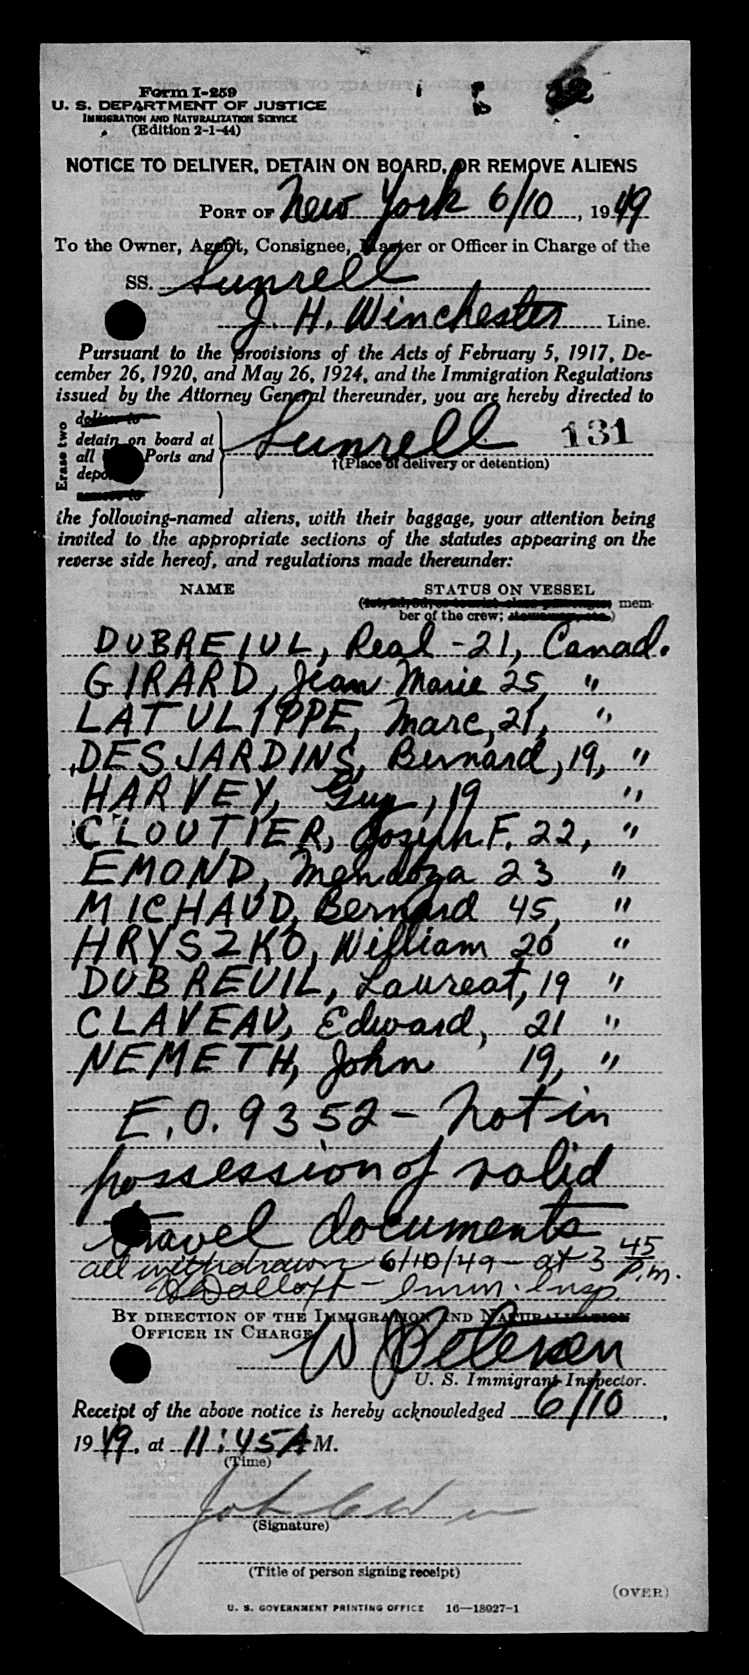 Form I-259
U. S. DEPARTMENT OF JUSTICE
IMMIGRATION AND NATURALIZATION SERVICE
(Edition 2-1-44)
NOTICE TO DELIVER, DETAIN ON BOARD, OR REMOVE ALIENS
PORT OF New York 6/10, 1949
To the Owner, Agent, Consignee, Master or Officer in Charge of the
SS. Sunrell
J. H. Winchester Line.
Pursuant to the provisions of the Acts of February 5, 1917, De-
cember 26, 1920, and May 26, 1924, and the Immigration Regulations
issued by the Attorney General thereunder, you are hereby directed to
Erase two
deliver to
detain on board at
all Ports and
remove to
Sunrell 131
†(Place of delivery or detention)
the following-named aliens, with their baggage, your attention being
invited to the appropriate sections of the statutes appearing on the
reverse side hereof, and regulations made thereunder:
NAME STATUS ON VESSEL
mem-
ber of the crew;
DUBREIUL, Real -21, Canad.
GIRARD, Jean Marie 25, "
LATULIPPE, Marc, 21, "
DESJARDINS, Bernard, 19, "
HARVEY, Guy, 19 "
CLOUTIER, Joseph F. 22, "
EMOND, Mendoza 23 "
MICHAUD, Bernard 45, "
HRYSZKO, William 20 "
DUBREUIL, Laureat, 19 "
CLAVEAU, Edward, 21 "
NEMETH, John 19, "
E.O. 9352 - Not in
possession of valid
travel documents
all withdrawn 6/10/49 - at 3 45 P.m.
Imm. Insp.
BY DIRECTION OF THE IMMIGRATION AND NATURALIZATION
OFFICER IN CHARGE
W Petersen
U. S. Immigrant Inspector.
Receipt of the above notice is hereby acknowledged 6/10,
1949, at 11:45 A M.
(Time)
(Signature)
(Title of person signing receipt)
(OVER)
U. S. GOVERNMENT PRINTING OFFICE 16—18027-1